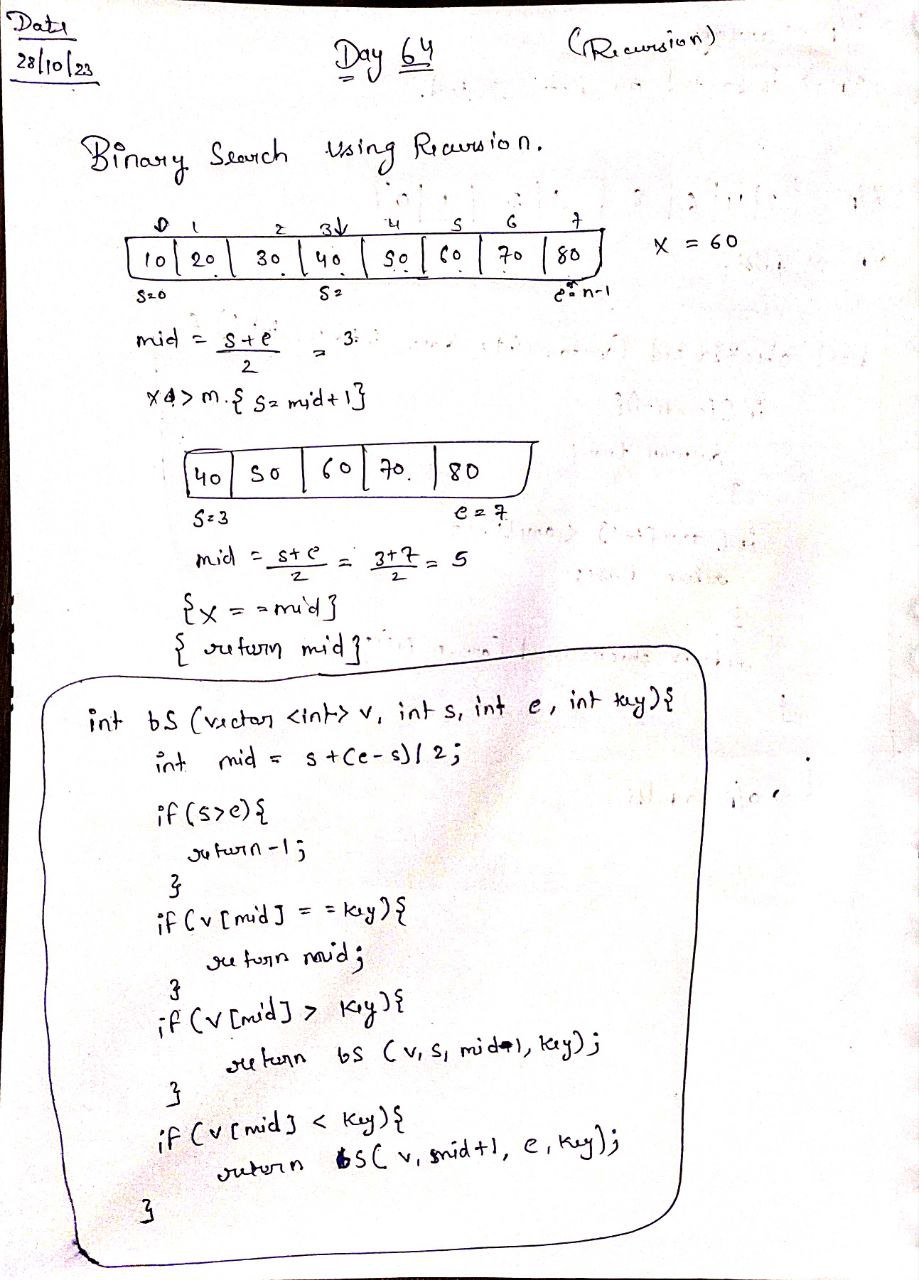 Date
28/10/23
Day 64
(Recursion)
Binary Search Using Recursion.
0 1 2 3↓ 4 5 6 7
10 20 30 40 50 60 70 80
x = 60
s=0 s= e=n-1
mid = s+e/2 = 3.
x > m. { s= mid+1}
40 50 60 70. 80
s=3 e=7
mid = s+e/2 = 3+7/2 = 5
{x = = mid}
{ return mid}
int bS (vector <int> v, int s, int e, int key){
int mid = s+(e-s)/2;
if (s>e){
return -1;
}
if (v [mid] = = key){
return mid;
}
if (v [mid] > key){
return bS (v, s, mid-1, key);
}
if (v [mid] < key){
return bS( v, mid+1, e, key);
}